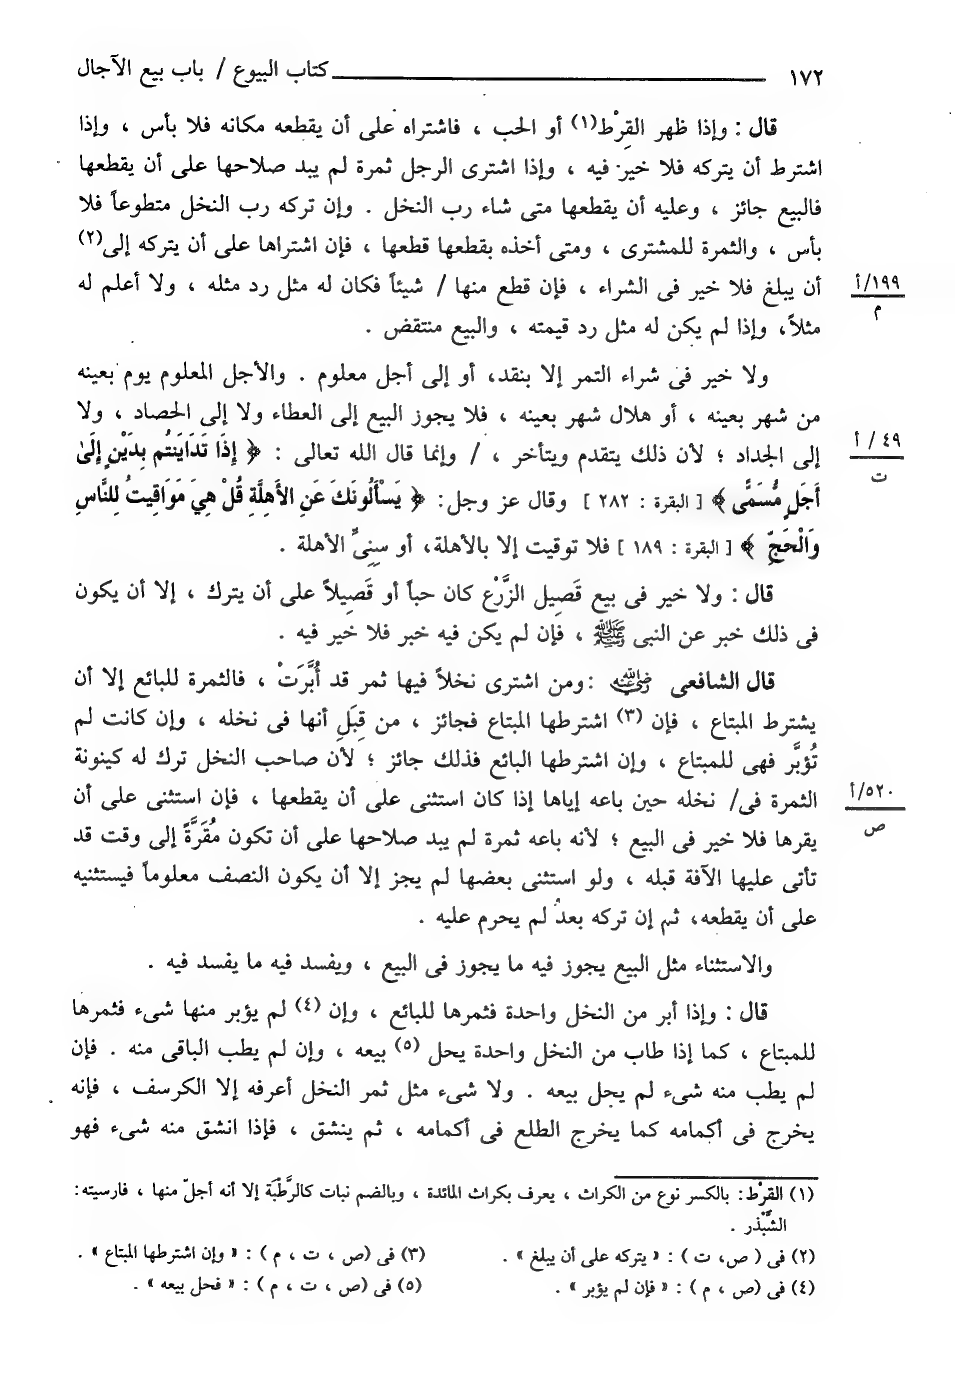 ١٧٢ كتاب البيوع / باب بيع الآجال
قال : وإذا ظهر القِرْط(١) أو الحب ، فاشتراه على أن يقطعه مكانه فلا بأس ، وإذا
اشترط أن يتركه فلا خير فيه ، وإذا اشترى الرجل ثمرة لم يبد صلاحها على أن يقطعها
فالبيع جائز ، وعليه أن يقطعها متى شاء رب النخل . وإن تركه رب النخل متطوعاً فلا
بأس ، والثمرة للمشترى ، ومتى أخذه بقطعها قطعها ، فإن اشتراها على أن يتركه إلى(٢)
أن يبلغ فلا خير فى الشراء ، فإن قطع منها / شيئاً فكان له مثل رد مثله ، ولا أعلم له
١٩٩/أ
م
مثلاً، وإذا لم يكن له مثل رد قيمته ، والبيع منتقض .
ولا خير فى شراء التمر إلا بنقد، أو إلى أجل معلوم . والأجل المعلوم يوم بعينه
من شهر بعينه ، أو هلال شهر بعينه ، فلا يجوز البيع إلى العطاء ولا إلى الحصاد ، ولا
إلى الجداد ؛ لأن ذلك يتقدم ويتأخر ، / وإنما قال الله تعالى : ﴿ إِذَا تَدَايَنتُم بِدَيْنٍ إِلَىٰ
٤٩ / أ
ت
أَجَلٍ مُّسَمًّى ﴾ [ البقرة : ٢٨٢ ] وقال عز وجل: ﴿ يَسْأَلُونَكَ عَنِ الأَهِلَّةِ قُلْ هِيَ مَوَاقِيتُ لِلنَّاسِ
وَالْحَجِّ ﴾ [ البقرة : ١٨٩ ] فلا توقيت إلا بالأهلة، أو سِنِىِّ الأهلة .
قال : ولا خير فى بيع قَصِيل الزَّرْع كان حباً أو قَصِيلاً على أن يترك ، إلا أن يكون
فى ذلك خبر عن النبى ﷺ ، فإن لم يكن فيه خبر فلا خير فيه .
قال الشافعى رضي الله عنه :ومن اشترى نخلاً فيها ثمر قد أُبِّرَتْ ، فالثمرة للبائع إلا أن
يشترط المبتاع ، فإن (٣) اشترطها المبتاع فجائز ، من قِبَلِ أنها فى نخله ، وإن كانت لم
تُؤبَّر فهى للمبتاع ، وإن اشترطها البائع فذلك جائز ؛ لأن صاحب النخل ترك له كينونة
الثمرة فى/ نخله حين باعه إياها إذا كان استثنى على أن يقطعها ، فإن استثنى على أن
٥٢٠/أ
ص
يقرها فلا خير فى البيع ؛ لأنه باعه ثمرة لم يبد صلاحها على أن تكون مُقَرَّةً إلى وقت قد
تأتى عليها الآفة قبله ، ولو استثنى بعضها لم يجز إلا أن يكون النصف معلوماً فيستثنيه
على أن يقطعه، ثم إن تركه بعدُ لم يحرم عليه .
والاستثناء مثل البيع يجوز فيه ما يجوز فى البيع ، ويفسد فيه ما يفسد فيه .
قال : وإذا أبر من النخل واحدة فثمرها للبائع ، وإن (٤) لم يؤبر منها شىء فثمرها
للمبتاع ، كما إذا طاب من النخل واحدة يحل (٥) بيعه ، وإن لم يطب الباقى منه . فإن
لم يطب منه شىء لم يحل بيعه . ولا شىء مثل ثمر النخل أعرفه إلا الكرسف ، فإنه
يخرج فى أكمامه كما يخرج الطلع فى أكمامه ، ثم ينشق ، فإذا انشق منه شىء فهو
(١) القرْط: بالكسر نوع من الكراث ، يعرف بكراث المائدة ، وبالضم نبات كالرَّطْبَة إلا أنه أجلّ منها ، فارسيته:
الشَّبْذر .
(٢) فى ( ص، ت ) : « يتركه على أن يبلغ » . (٣) فى (ص ، ت ، م ) : « وإن اشترطها المبتاع » .
(٤) فى (ص ، م ) : « فإن لم يؤبر » . (٥) فى (ص ، ت ، م ) : « فحل بيعه » .